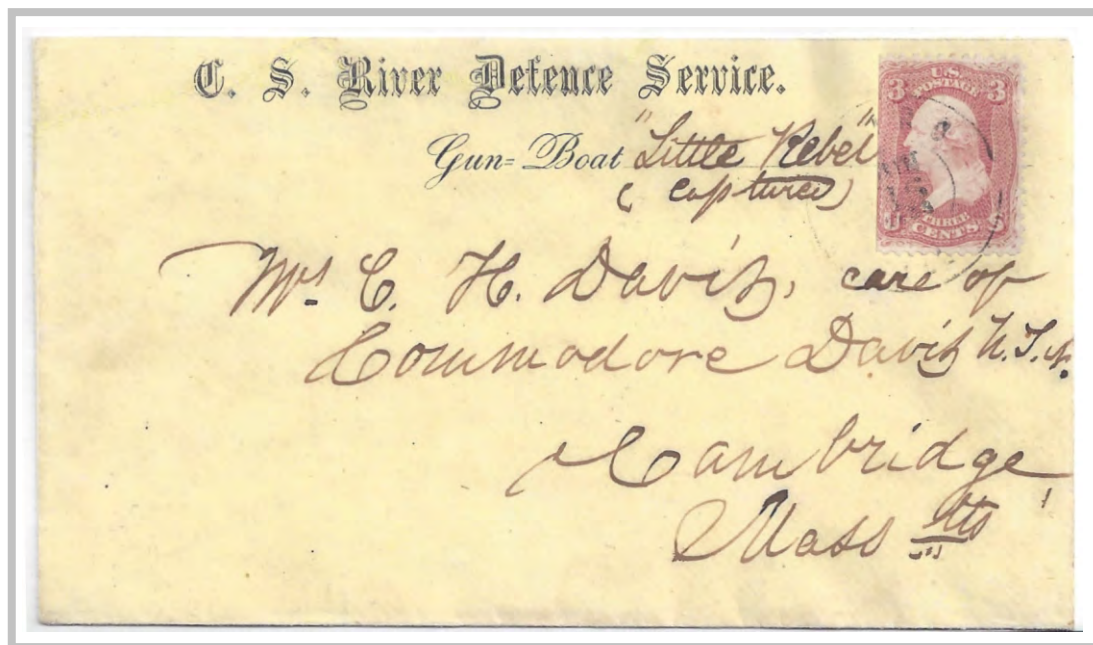 C. S. River Defence Service.
Gun=Boat "Little Rebel"
(captured)
U.S.
POSTAGE
3 3
THREE
CENTS
Mrs C. H. Davis, care of
Commodore Davis U.S.N.
Cambridge
Mass etts